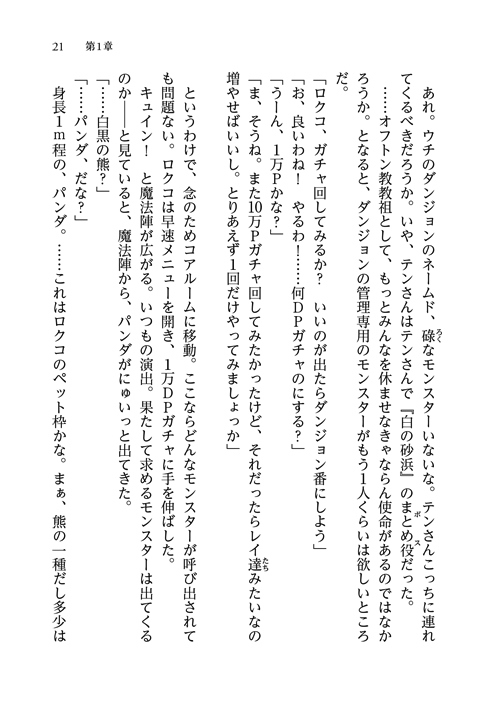 21　第1章
あれ。ウチのダンジョンのネームド、碌なモンスターいないな。テンさんこっちに連れ
てくるべきだろうか。いや、テンさんはテンさんで『白の砂浜』のまとめ役だった。
……オフトン教教祖として、もっとみんなを休ませなきゃならん使命があるのではなか
ろうか。となると、ダンジョンの管理専用のモンスターがもう1人くらいは欲しいところ
だ。
「ロクコ、ガチャ回してみるか？　いいのが出たらダンジョン番にしよう」
「お、良いわね！　やるわ！……何DPガチャのにする？」
「うーん、1万Pかな？」
「ま、そうね。また10万Pガチャ回してみたかったけど、それだったらレイ達みたいなの
増やせばいいし。とりあえず1回だけやってみましょっか」
というわけで、念のためコアルームに移動。ここならどんなモンスターが呼び出されて
も問題ない。ロクコは早速メニューを開き、1万DPガチャに手を伸ばした。
キュイン！　と魔法陣が広がる。いつもの演出。果たして求めるモンスターは出てくる
のか――と見ていると、魔法陣から、パンダがにゅいっと出てきた。
「……白黒の熊？」
「……パンダ、だな？」
身長1m程の、パンダ。……これはロクコのペット枠かな。まぁ、熊の一種だし多少は